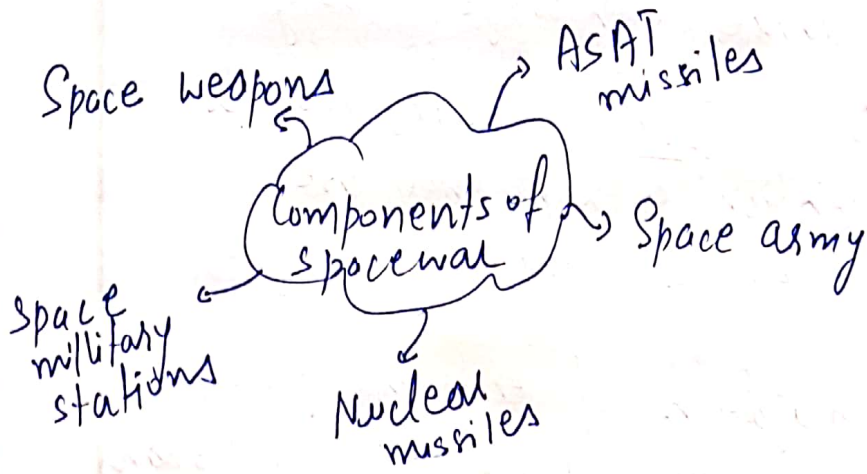 Space weapons
ASAT
missiles
Components of
spacewar
Space army
Space
millitary
stations
Nuclear
missiles